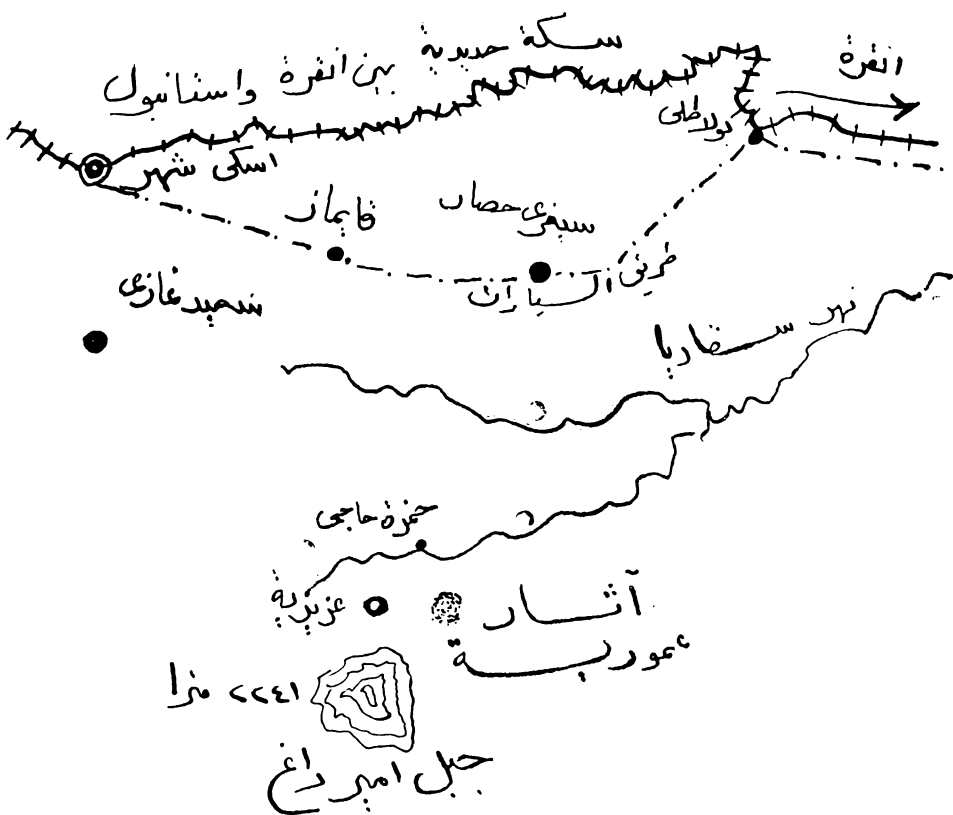 سكة حديدية بين انقرة واستانبول
انقرة
بولاطلى
اسكى شهر
قايماز
سيفرى حصار
طريق السيارات
سيد غازى
نهر سقاريا
حمزة حاجى
عزيزية
آثار
عمورية
٢٢٤١ مترا
جبل امير داغ